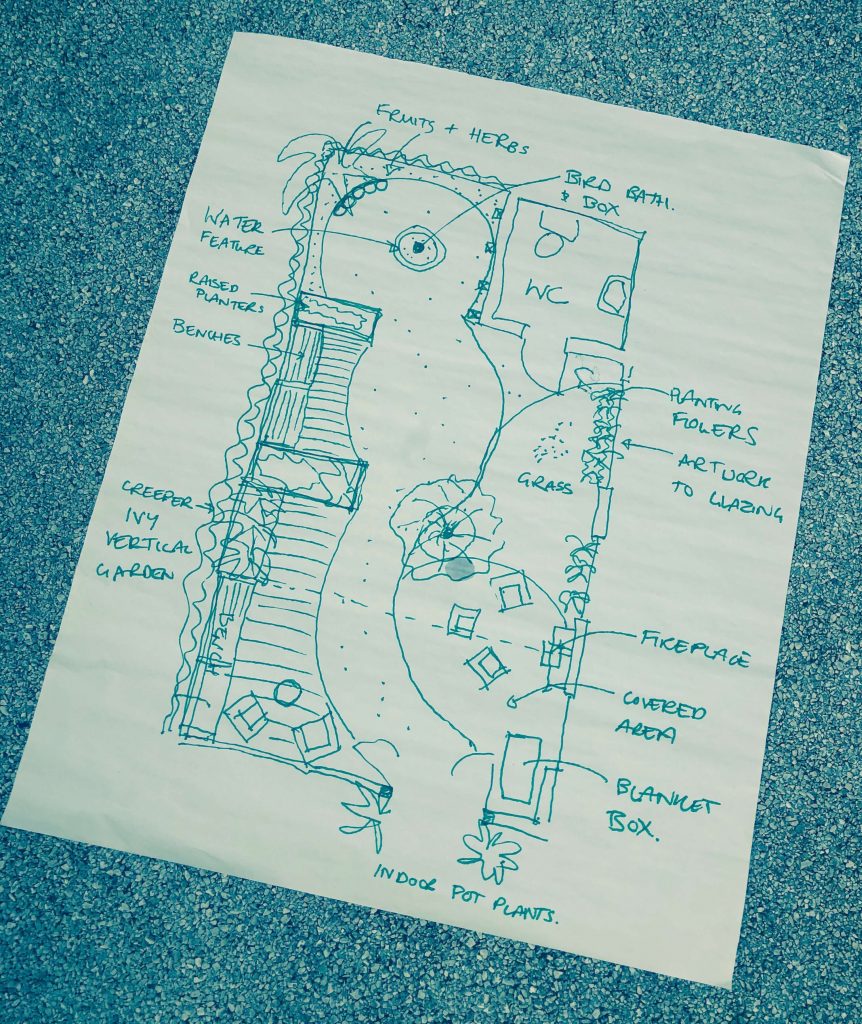 FRUITS + HERBS
BIRD BATH.
& BOX
WATER
FEATURE
WC
RAISED
PLANTERS
BENCHES
PLANTING
FLOWERS
ARTWORK
TO GLAZING
GRASS
CREEPER
IVY
VERTICAL
GARDEN
BENCH
FIREPLACE
COVERED
AREA
BLANKET
BOX.
INDOOR POT PLANTS.